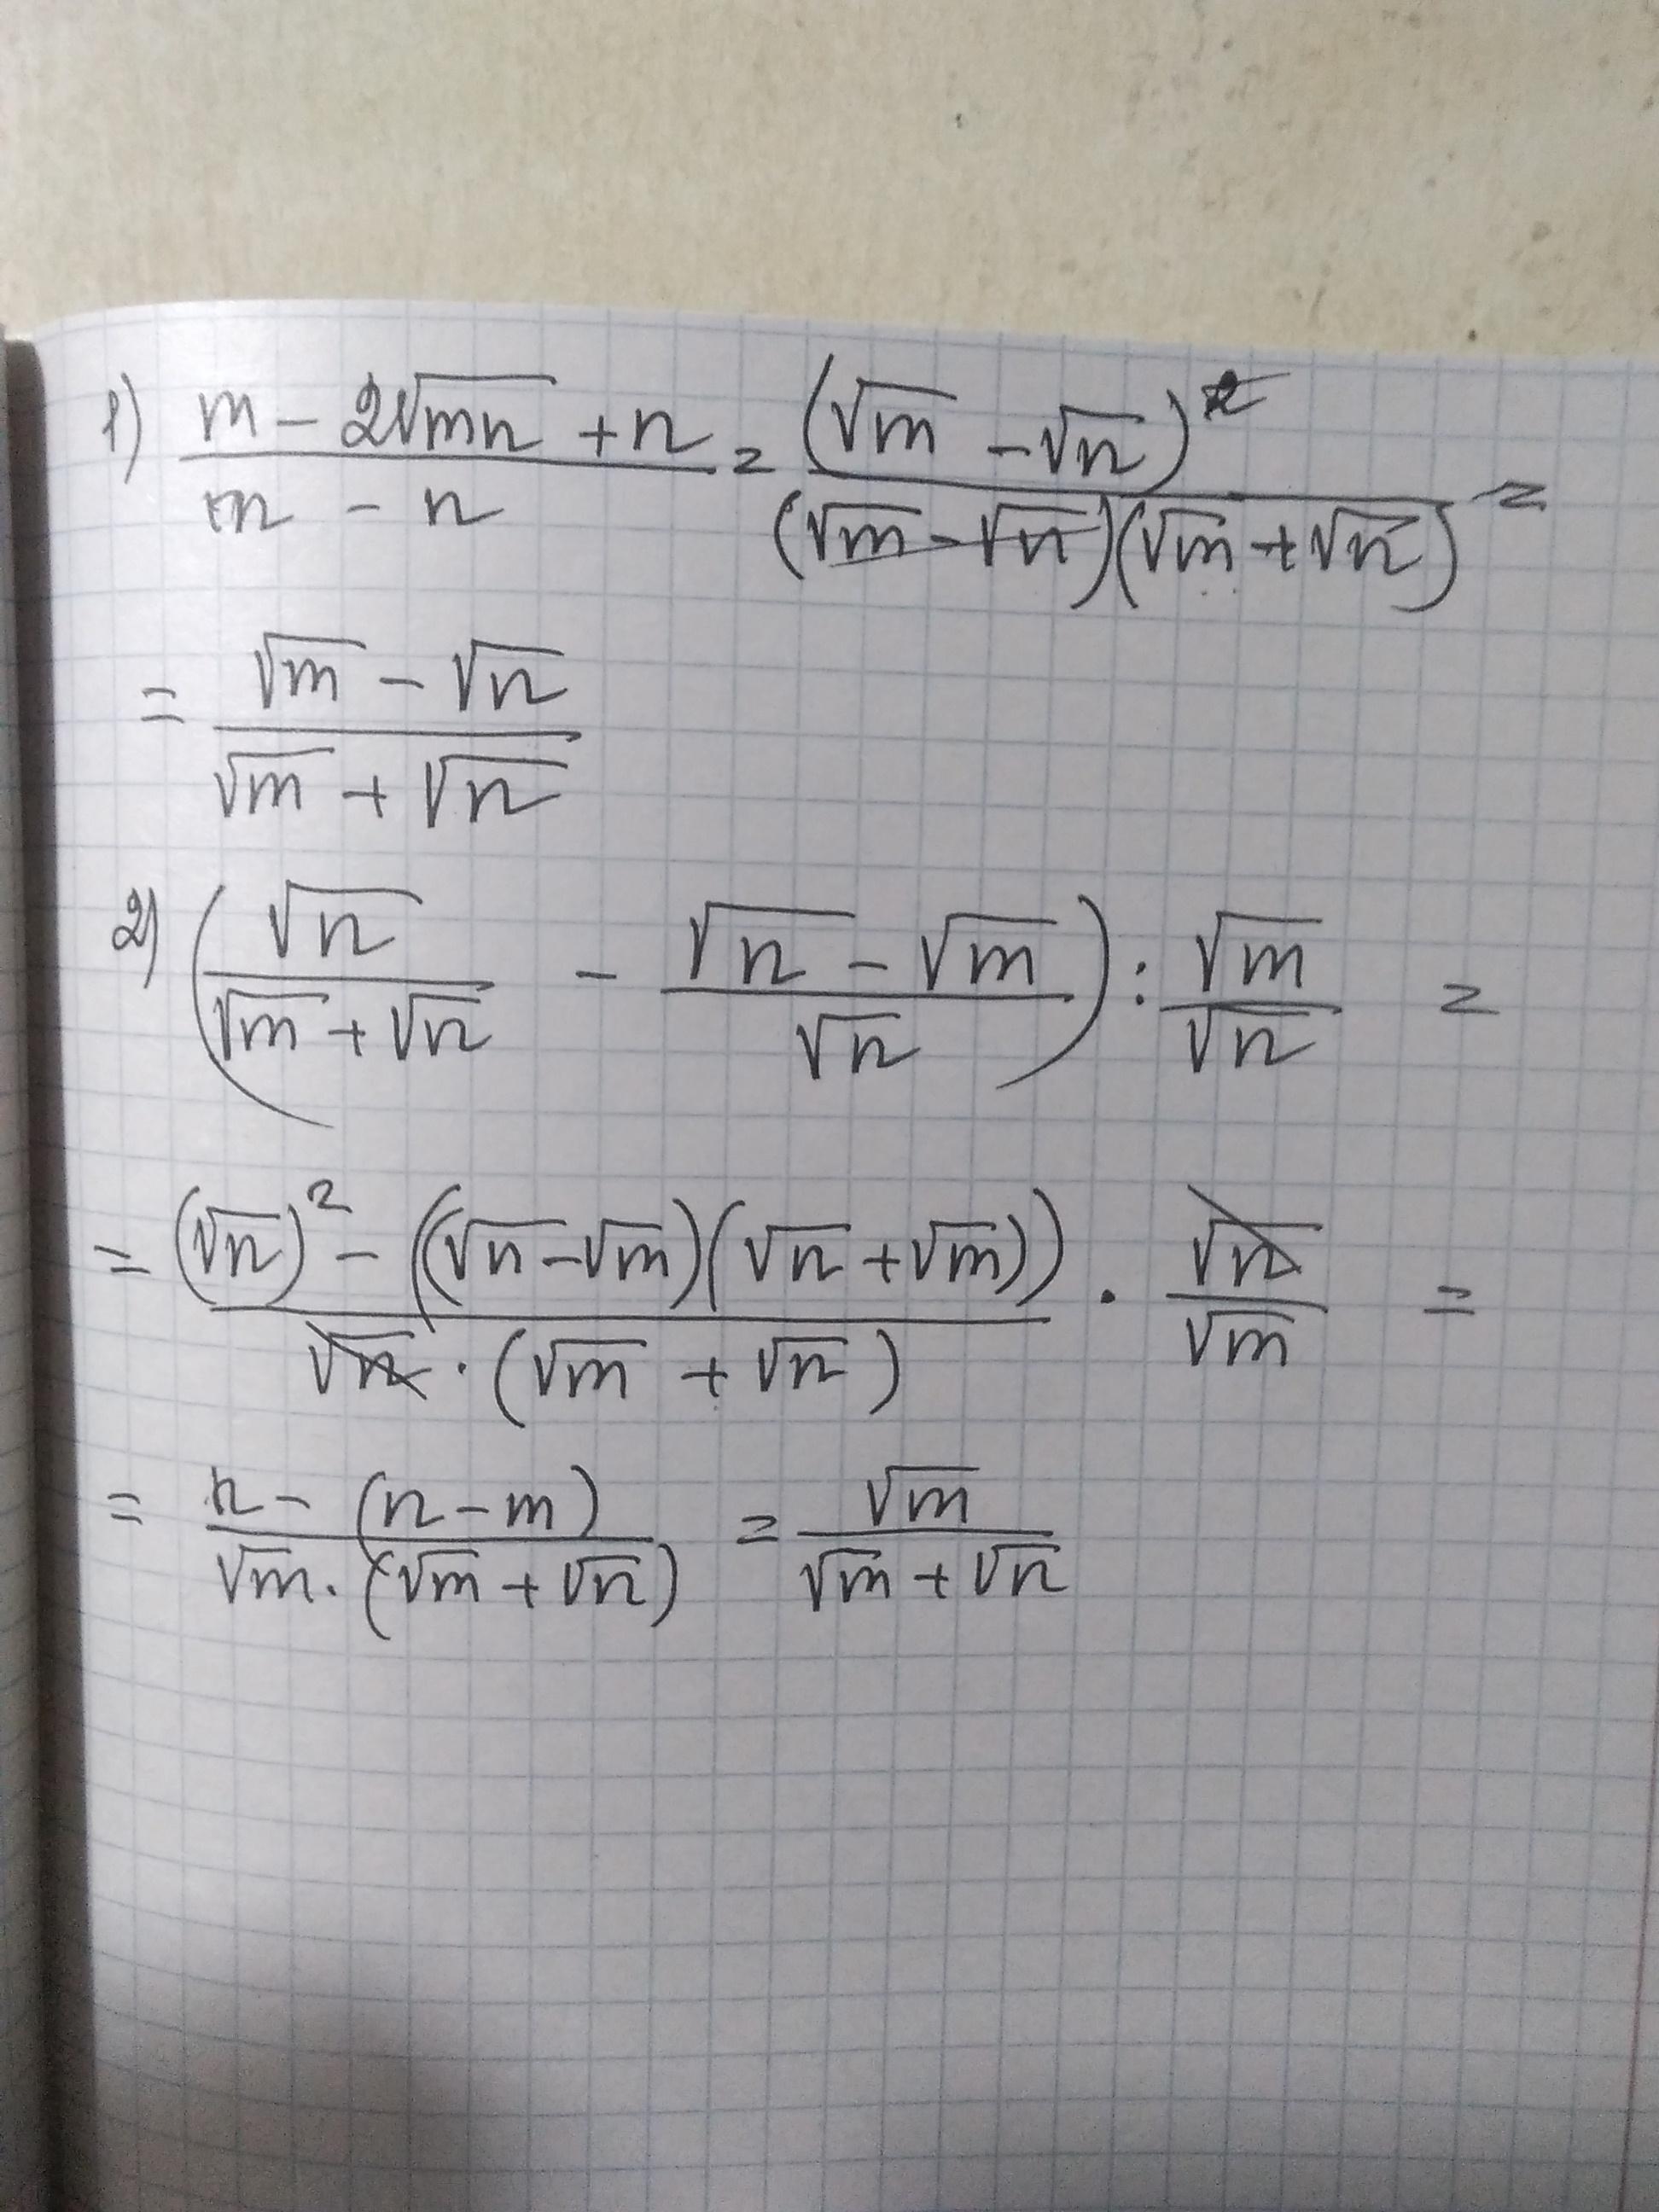 1) (m - 2√(mn) + n)/(m - n) = (√m - √n)²/((√m - √n)(√m + √n)) =
= (√m - √n)/(√m + √n)
2) (√n/(√m + √n) - (√n - √m)/√n) : √m/√n =
= ((√n)² - ((√n - √m)(√n + √m)))/(√n · (√m + √n)) · √n/√m =
= (n - (n - m))/(√m · (√m + √n)) = √m/(√m + √n)